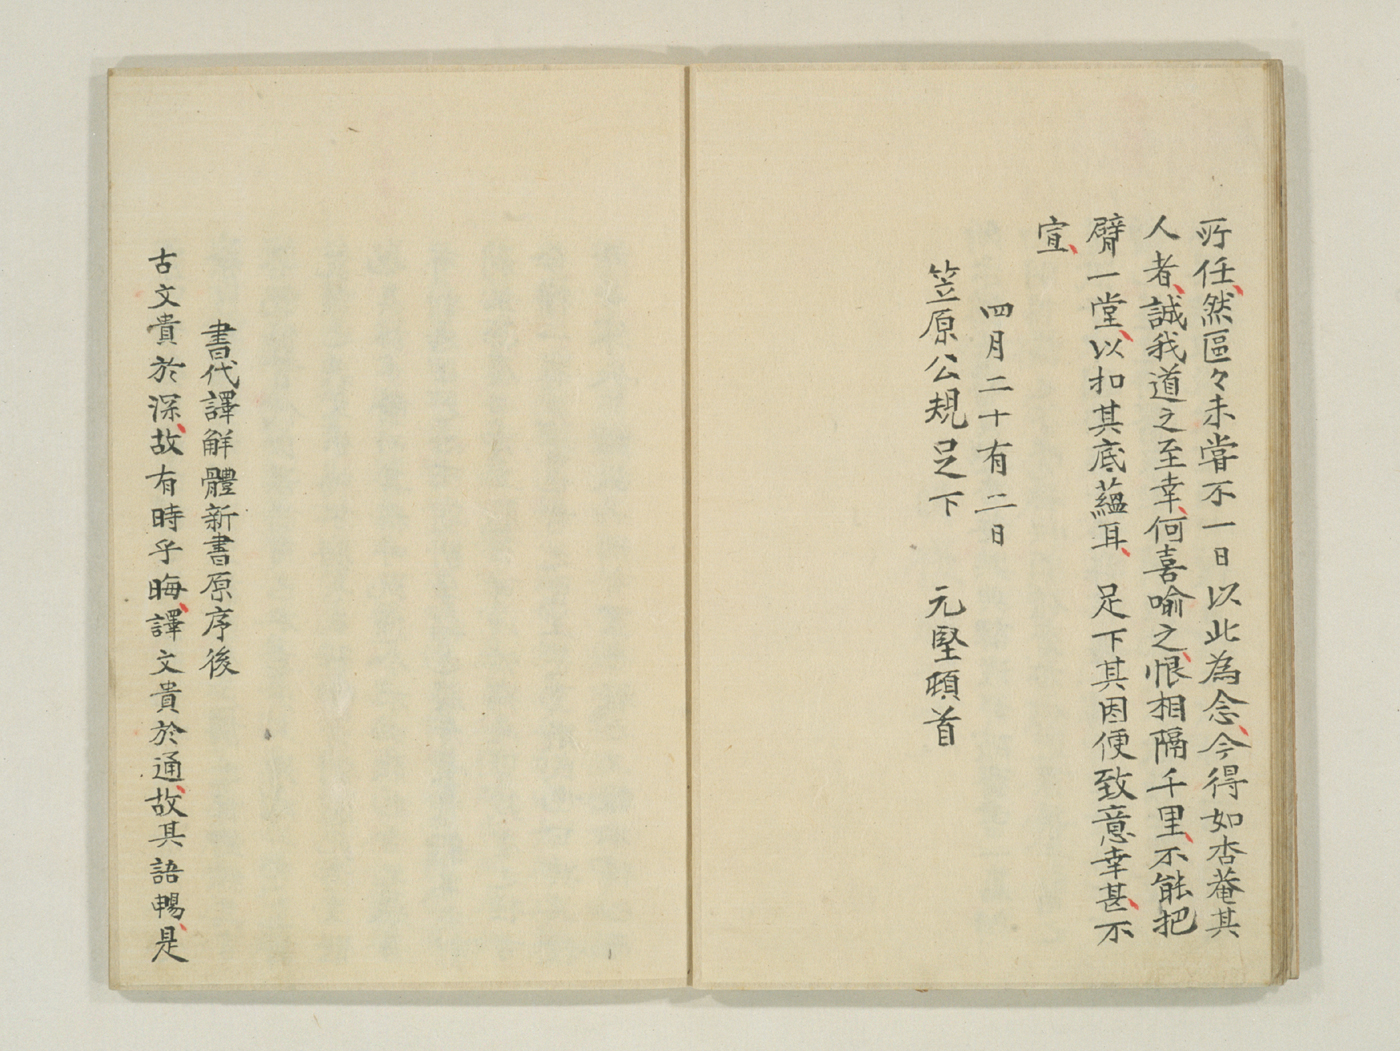 所任、然區々未嘗不一日以此為念、今得如杏菴其
人者、誠我道之至幸、何喜喩之、恨相隔千里、不能把
臂一堂、以扣其底蘊耳、 足下其因便致意幸甚、不
宣、
四月二十有二日
笠原公規足下 元堅頓首
書代譯解體新書原序後
古文貴於深、故有時乎晦、譯文貴於通、故其語暢、是